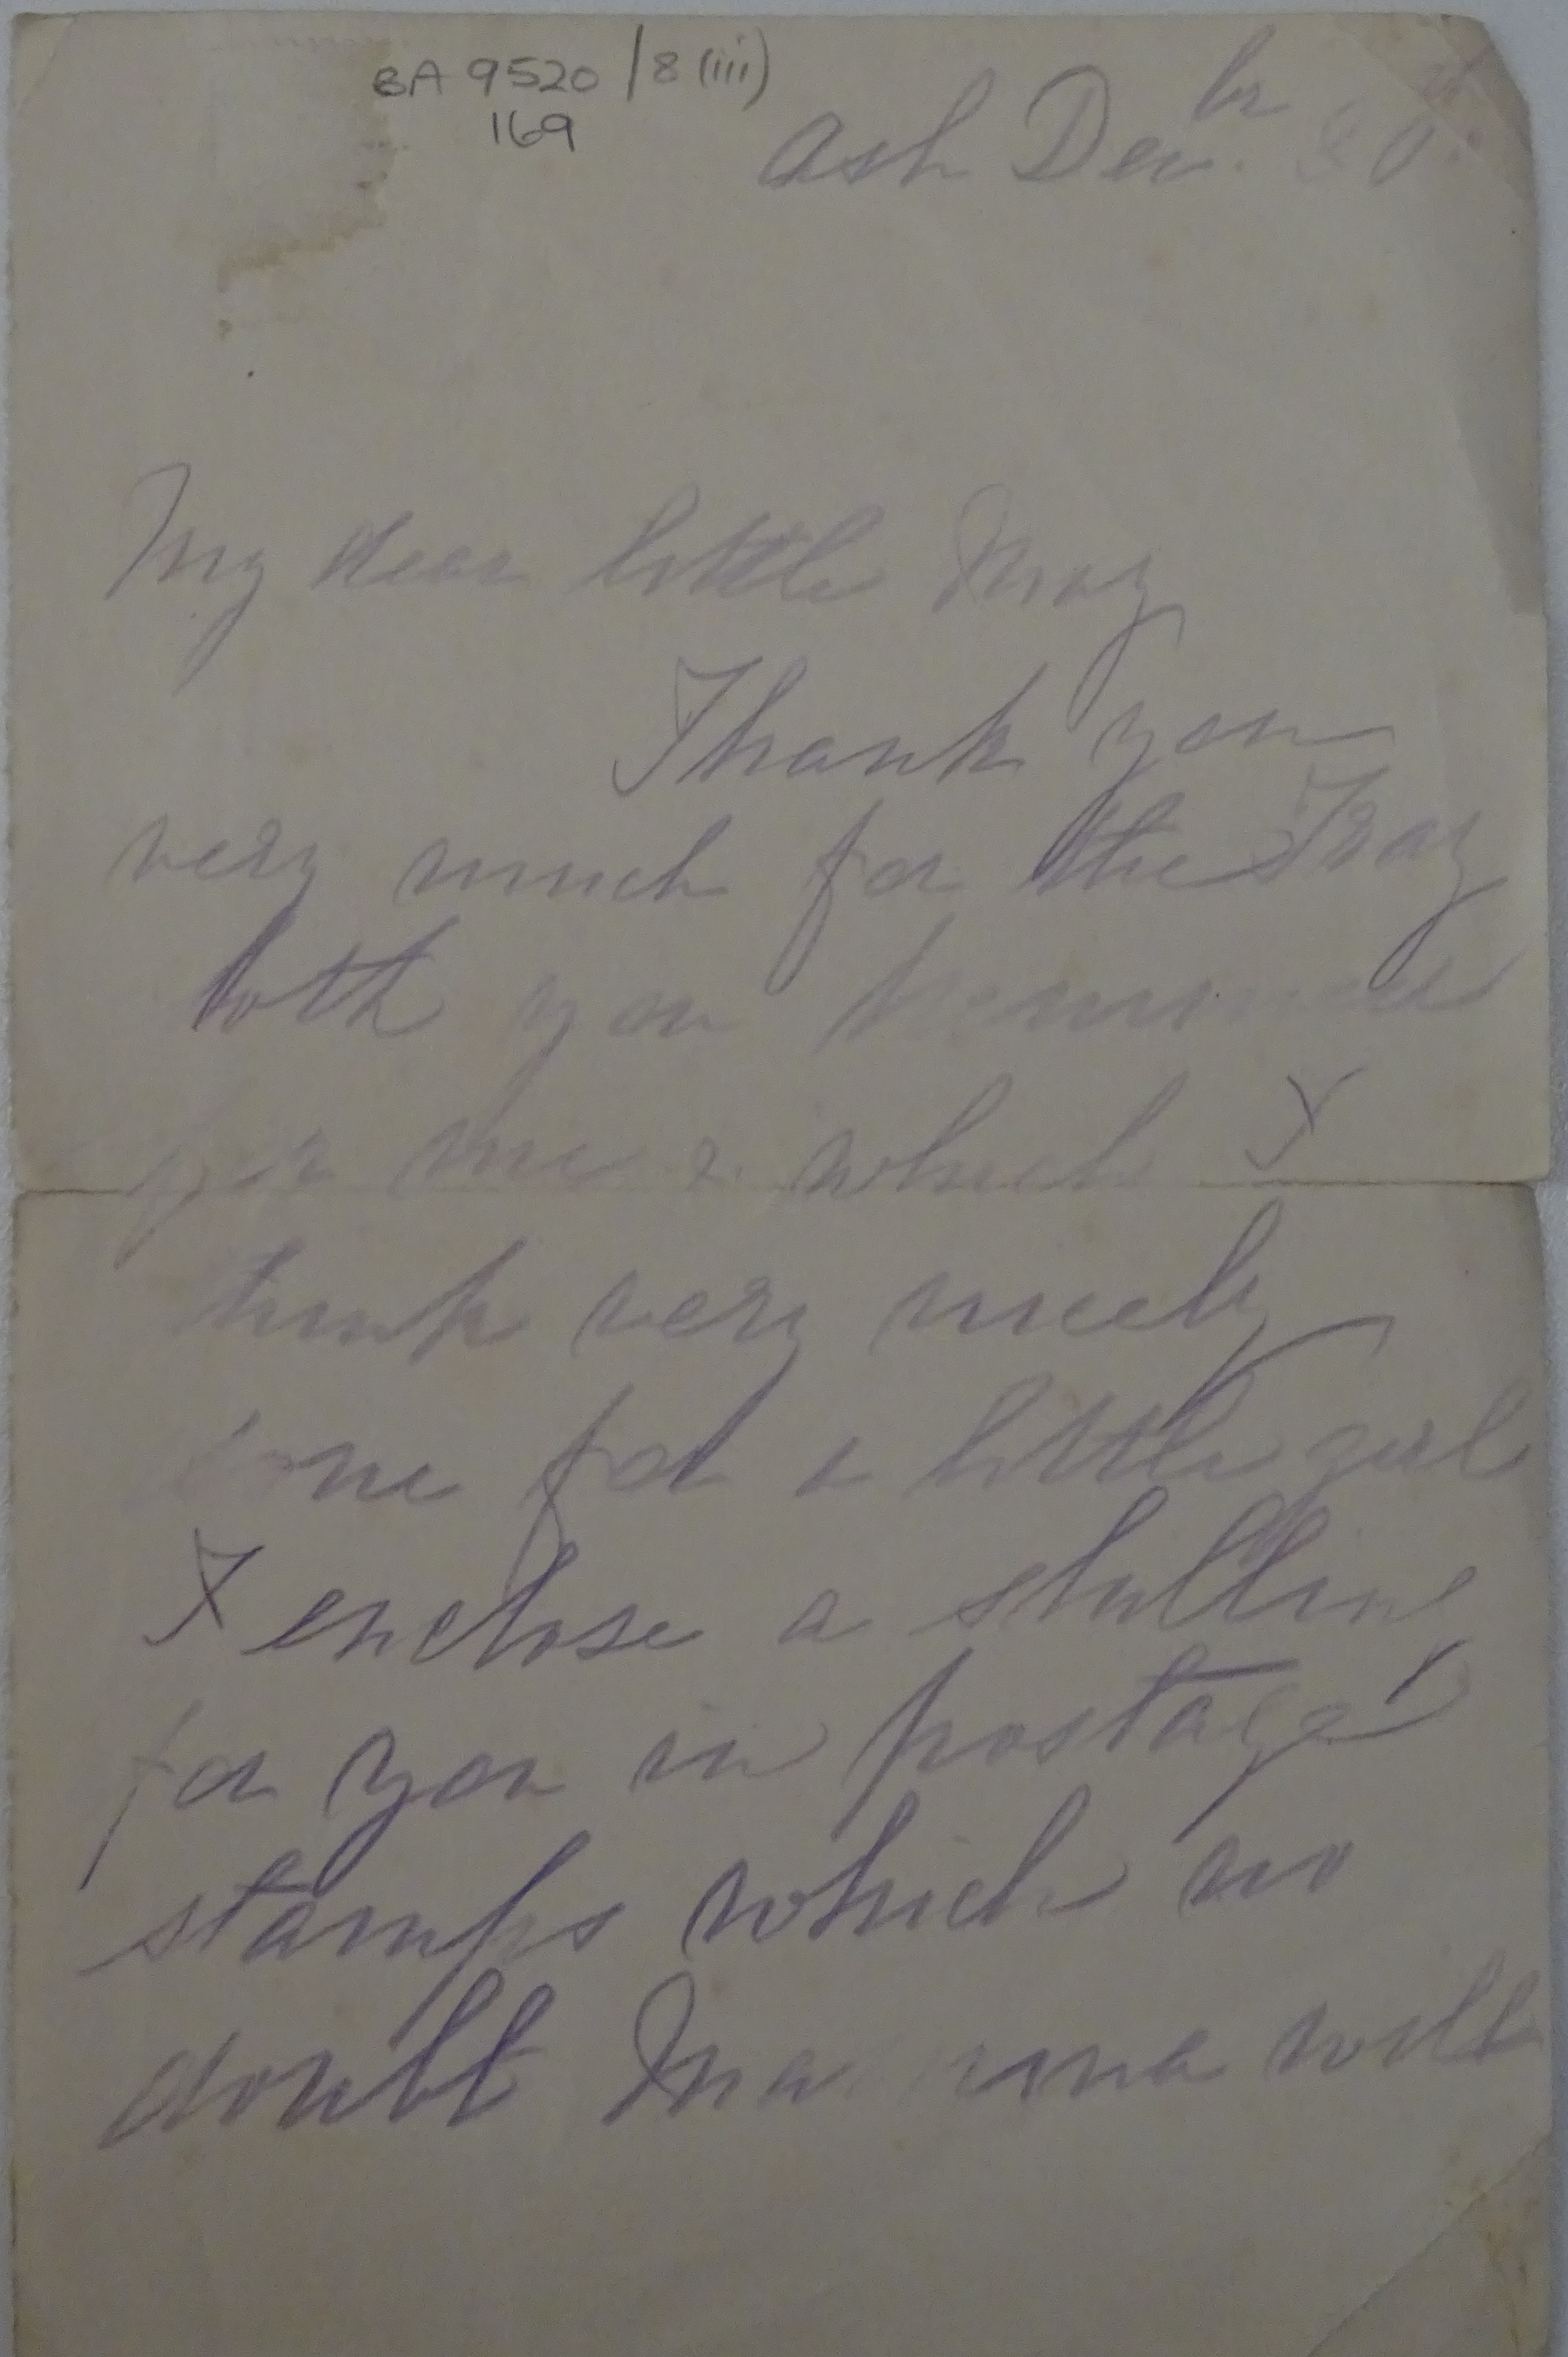 BA 9520/8(iii)
169
Ash Decbr. 30th
My dear little May
Thank you
very much for the Tray
Cloth you hemmed
for me & which I
think very nicely
done for a little girl
I enclose a shilling
for you in postage
stamps which no
doubt Mamma will